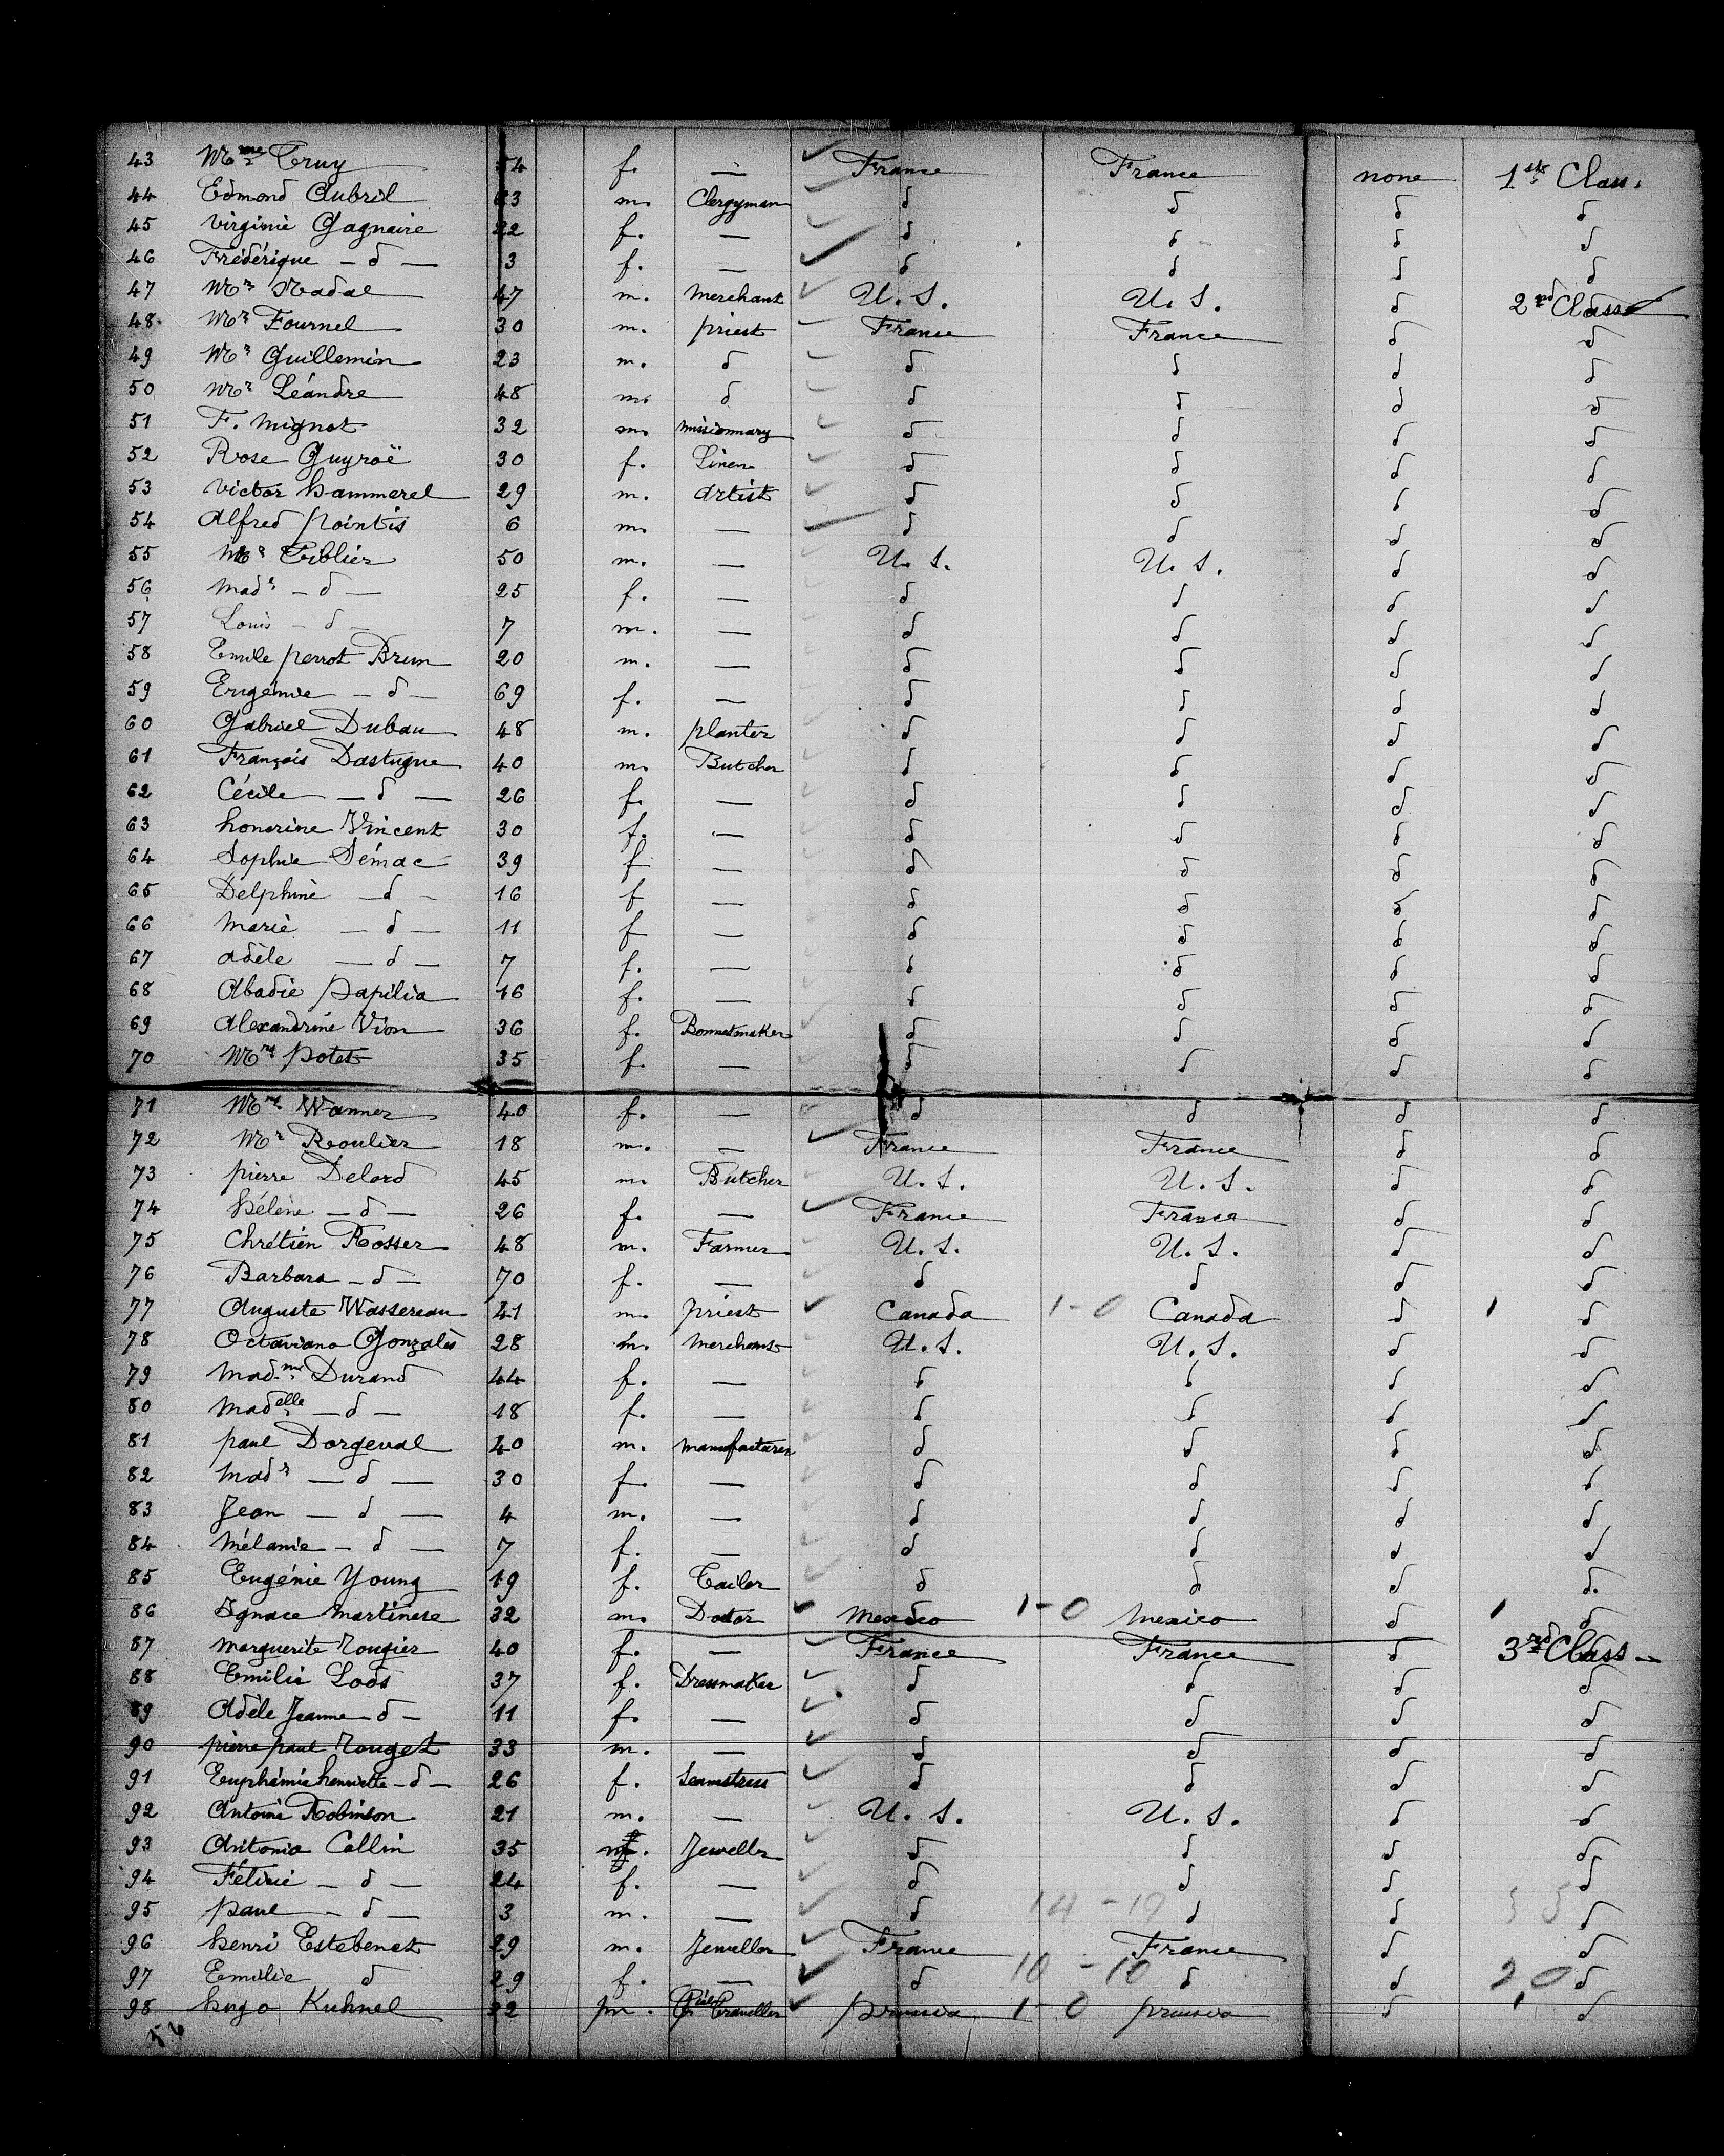 43 Mme Truy 54 f. — France France none 1st Class.
44 Edmond Aubril 63 m. Clergyman d d d d
45 Virginie Gagnaire 22 f. — d d d d
46 Frédérique — d — 3 f. — d d d d
47 Mr Nadal 47 m. Merchant U. S. U. S. d 2nd Class
48 Mr Fournel 30 m. priest France France d d
49 Mr Guillemin 23 m. d d d d d
50 Mr Léandre 48 m. d d d d d
51 F. Mignot 32 m. missionnary d d d d
52 Rose Guyroë 30 f. Linen d d d d
53 Victor hammerel 29 m. Artist d d d d
54 Alfred Pointis 6 m. — d d d d
55 Mr Tiblier 50 m. — U. S. U. S. d d
56 Made — d — 25 f. — d d d d
57 Louis — d — 7 m. — d d d d
58 Emile perrot Brun 20 m. — d d d d
59 Eugénie — d — 69 f. — d d d d
60 Gabriel Dubau 48 m. planter d d d d
61 François Dastugue 40 m. Butcher d d d d
62 Cécile — d — 26 f. — d d d d
63 honorine Vincent 30 f. — d d d d
64 Sophie Sémac 39 f — d d d d
65 Delphine — d — 16 f — d d d d
66 Marie — d — 11 f — d d d d
67 Adèle — d — 7 f. — d d d d
68 Abadie Papilia 16 f. — d d d d
69 Alexandrine Vion 36 f. Bonnetmaker d d d d
70 Mme Potet 35 f. — d d d d
71 Mme Wanner 40 f. — d d d d
72 Mr Roulier 18 m. — France France d d
73 pierre Delord 45 m. Butcher U. S. U. S. d d
74 hélène — d — 26 f. — France France d d
75 Chrétien Rosser 48 m. Farmer U. S. U. S. d d
76 Barbara — d — 70 f. — d d d d
77 Auguste Wassereau 41 m. priest Canada 1-0 Canada d 1 d
78 Octaviano Gonzalès 28 m. Merchant U. S. U. S. d d
79 Madme Durand 44 f. — d d d d
80 Madelle — d — 18 f. — d d d d
81 paul Dorgeval 40 m. manufacturer d d d d
82 Made — d — 30 f. — d d d d
83 Jean — d — 4 m. — d d d d
84 Mélanie — d — 7 f. — d d d d
85 Eugénie Young 19 f. Tailor d d d d.
86 Ignace Martinese 32 m. Doctor Mexico 1-0 Mexico d 1 d
87 Marguerite Rougier 40 f. — France France d 3rd Class —
88 Emilie Lods 37 f. Dressmaker d d d d
89 Adèle Jeanne d — 11 f. — d d d d
90 pierre paul Rouget 33 m. — d d d d
91 Euphémie henriette — d — 26 f. Seamstress d d d d
92 Antoine Robinson 21 m. — U. S. U. S. d d
93 Antonio Collin 35 m. Jeweller d d d d
94 Félicie — d — 24 f. — d d d d
95 Paul — d — 3 m. — d 14 - 19 d d d
96 henri Estebenet 29 m. Jeweller France France d d
97 Emilie d 29 f. — d 10 - 10 d d 20 d
98 hugo Kuhnel 32 m. Traveller prussia 1-0 prussia d 1 d